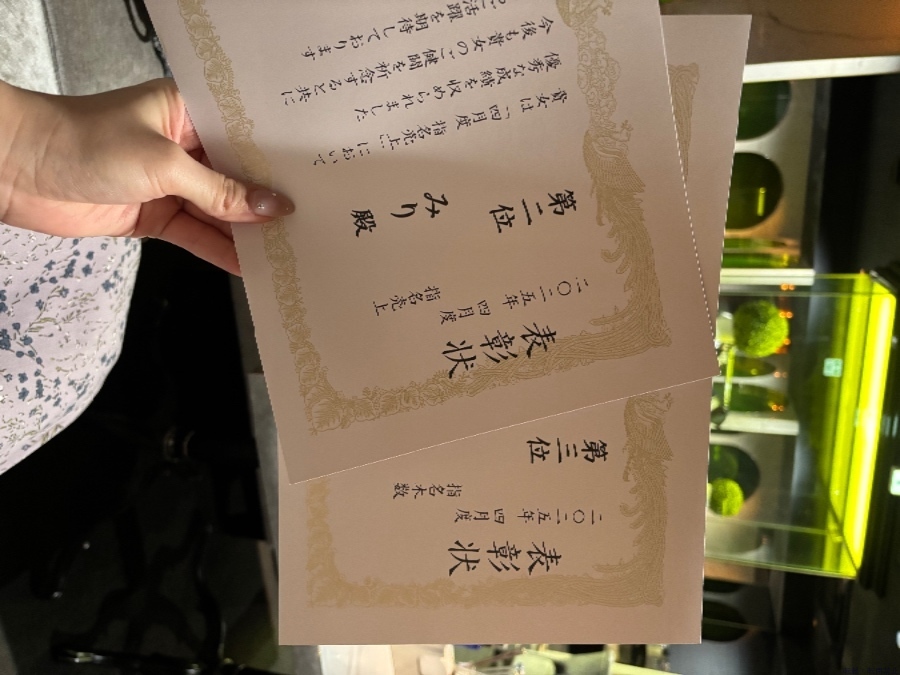 表彰状
二〇二五年 四月度 指名売上
第二位 みり 殿
貴女は、四月度 指名売上 において
優秀な成績を収められました
今後も貴女のご健闘を祈念すると共に
ご活躍を期待しております
表彰状
二〇二五年 四月度 指名本数
第三位